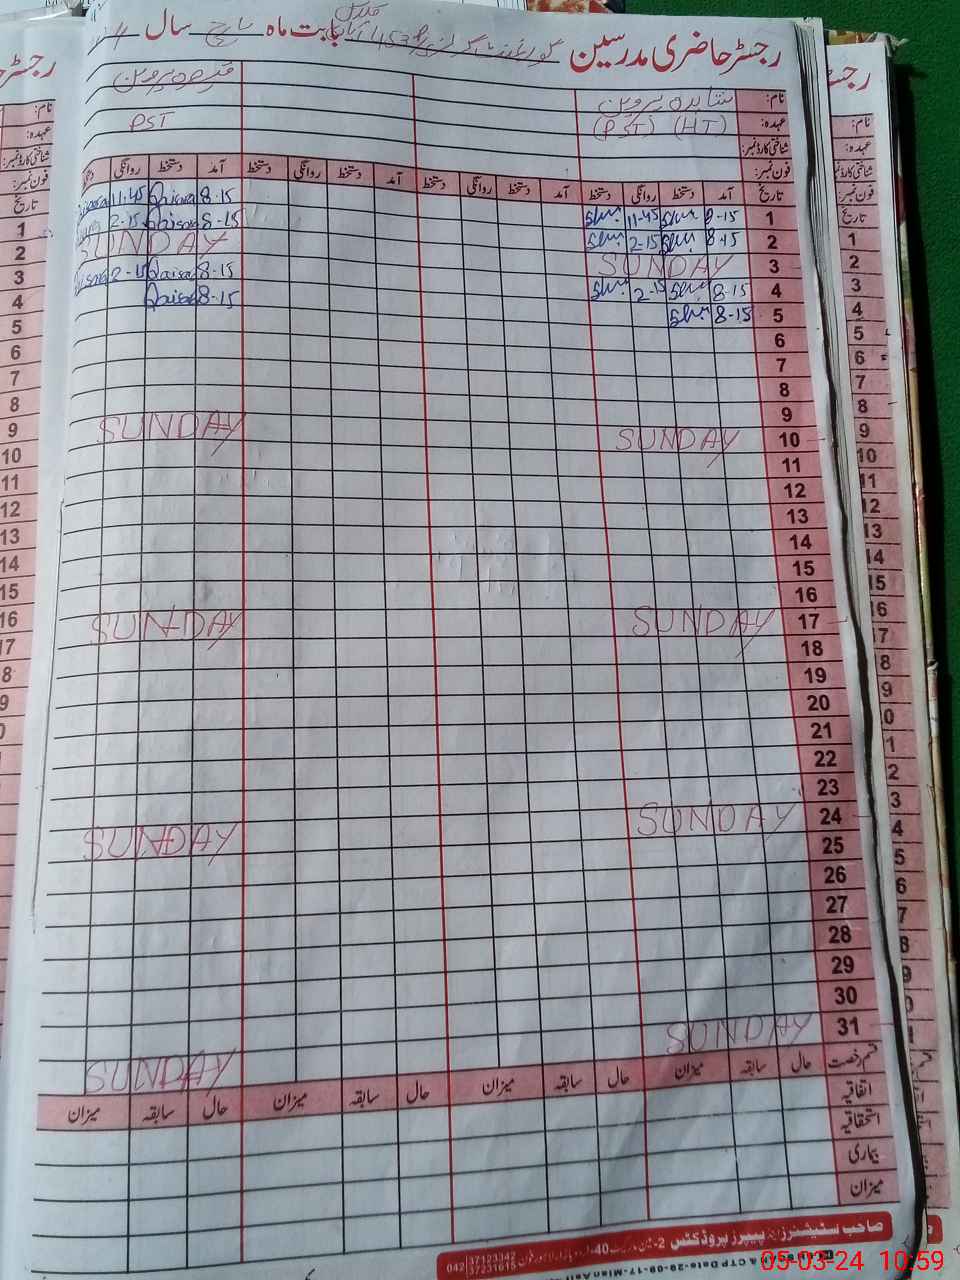 رجسٹر حاضری مدرسین گورنمنٹ گرلز بابت ماہ مارچ سال
نام: شاہدہ پروین قیصرہ پروین
عہدہ: (PST) (HT) PST
شناختی کارڈ نمبر:
فون نمبر:
تاریخ آمد دستخط روانگی دستخط آمد دستخط روانگی دستخط آمد دستخط روانگی دستخط آمد دستخط روانگی
1 8-15 11-45 8-15 Qaisra 11-45
2 8-15 2-15 8-15 Qaisra 2-15
3 SUNDAY SUNDAY
4 8-15 2-15 8-15 Qaisra 2-15
5 8-15 8-15 Qaisra
6
7
8
9
10 SUNDAY SUNDAY
11
12
13
14
15
16
17 SUNDAY SUNDAY
18
19
20
21
22
23
24 SUNDAY SUNDAY
25
26
27
28
29
30
31 SUNDAY SUNDAY
قسم رخصت حال سابقہ میزان حال سابقہ میزان حال سابقہ میزان حال سابقہ میزان
اتفاقیہ
استحقاقیہ
بیماری
میزان
صاحب سٹیشنرز اینڈ پیپرز پروڈکٹس
042 37123342
37231615
05-03-24 10:59